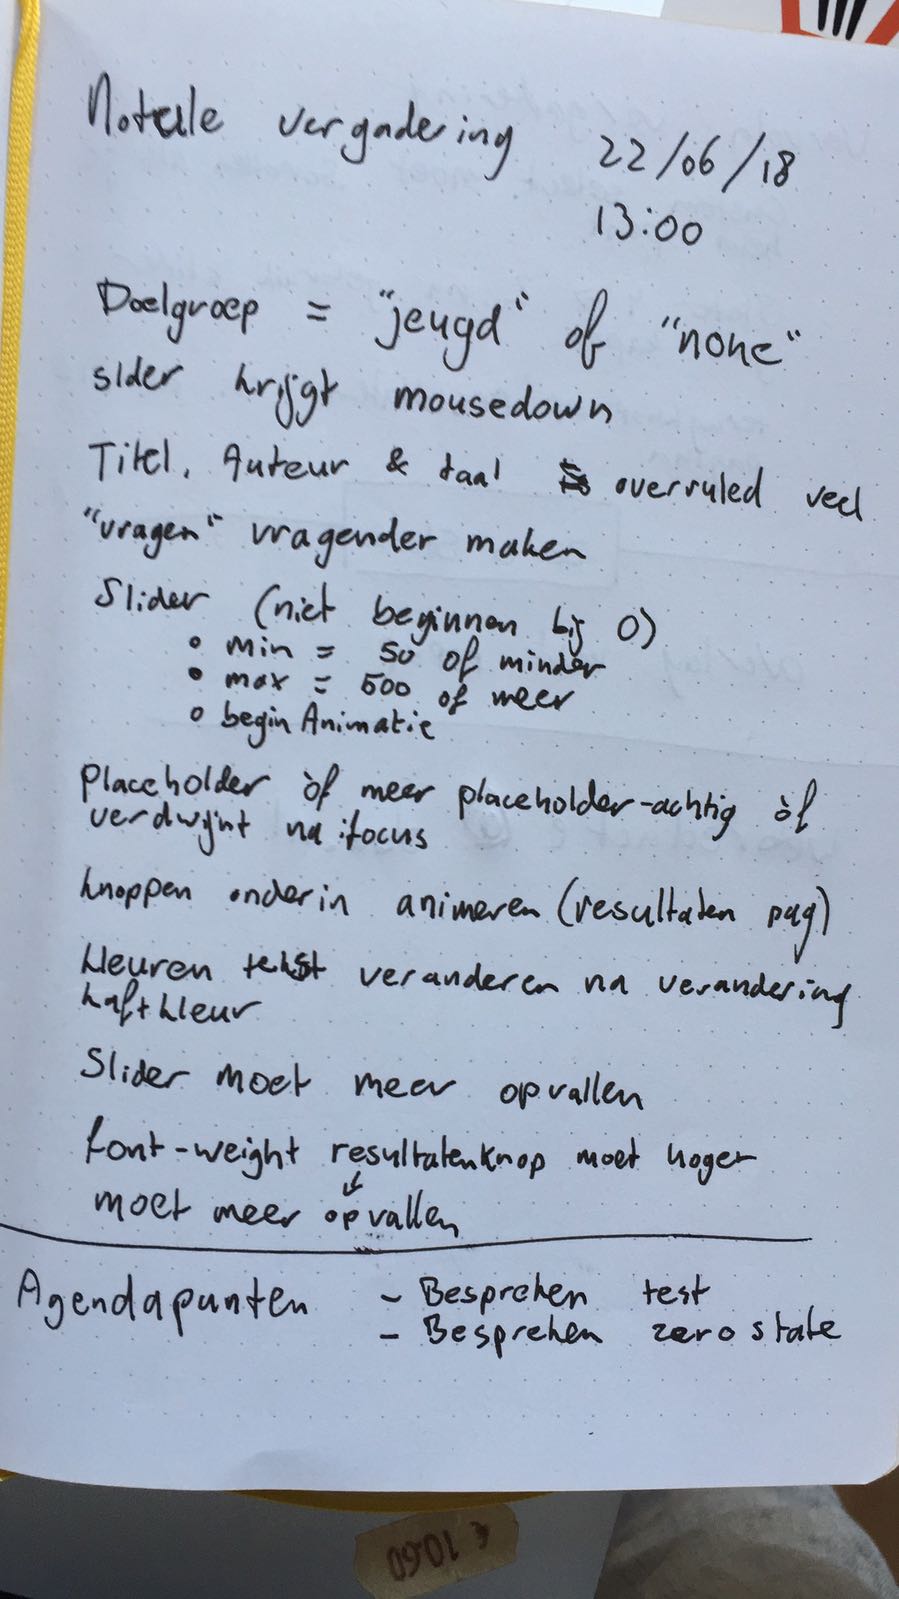 Notule vergadering 22/06/18
13:00
Doelgroep = "jeugd" of "none"
slder krijgt mousedown
Titel, Auteur & taal overruled veel
"vragen" vragender maken
Slider (niet beginnen bij 0)
• min = 50 of minder
• max = 500 of meer
• begin Animatie
Placeholder òf meer placeholder-achtig òf
verdwijnt na :focus
knoppen onderin animeren (resultaten pag)
kleuren tekst veranderen na verandering
kaftkleur
Slider moet meer opvallen
font-weight resultatenknop moet hoger
↓
moet meer opvallen
Agendapunten - Bespreken test
- Bespreken zero state
€ 10.60